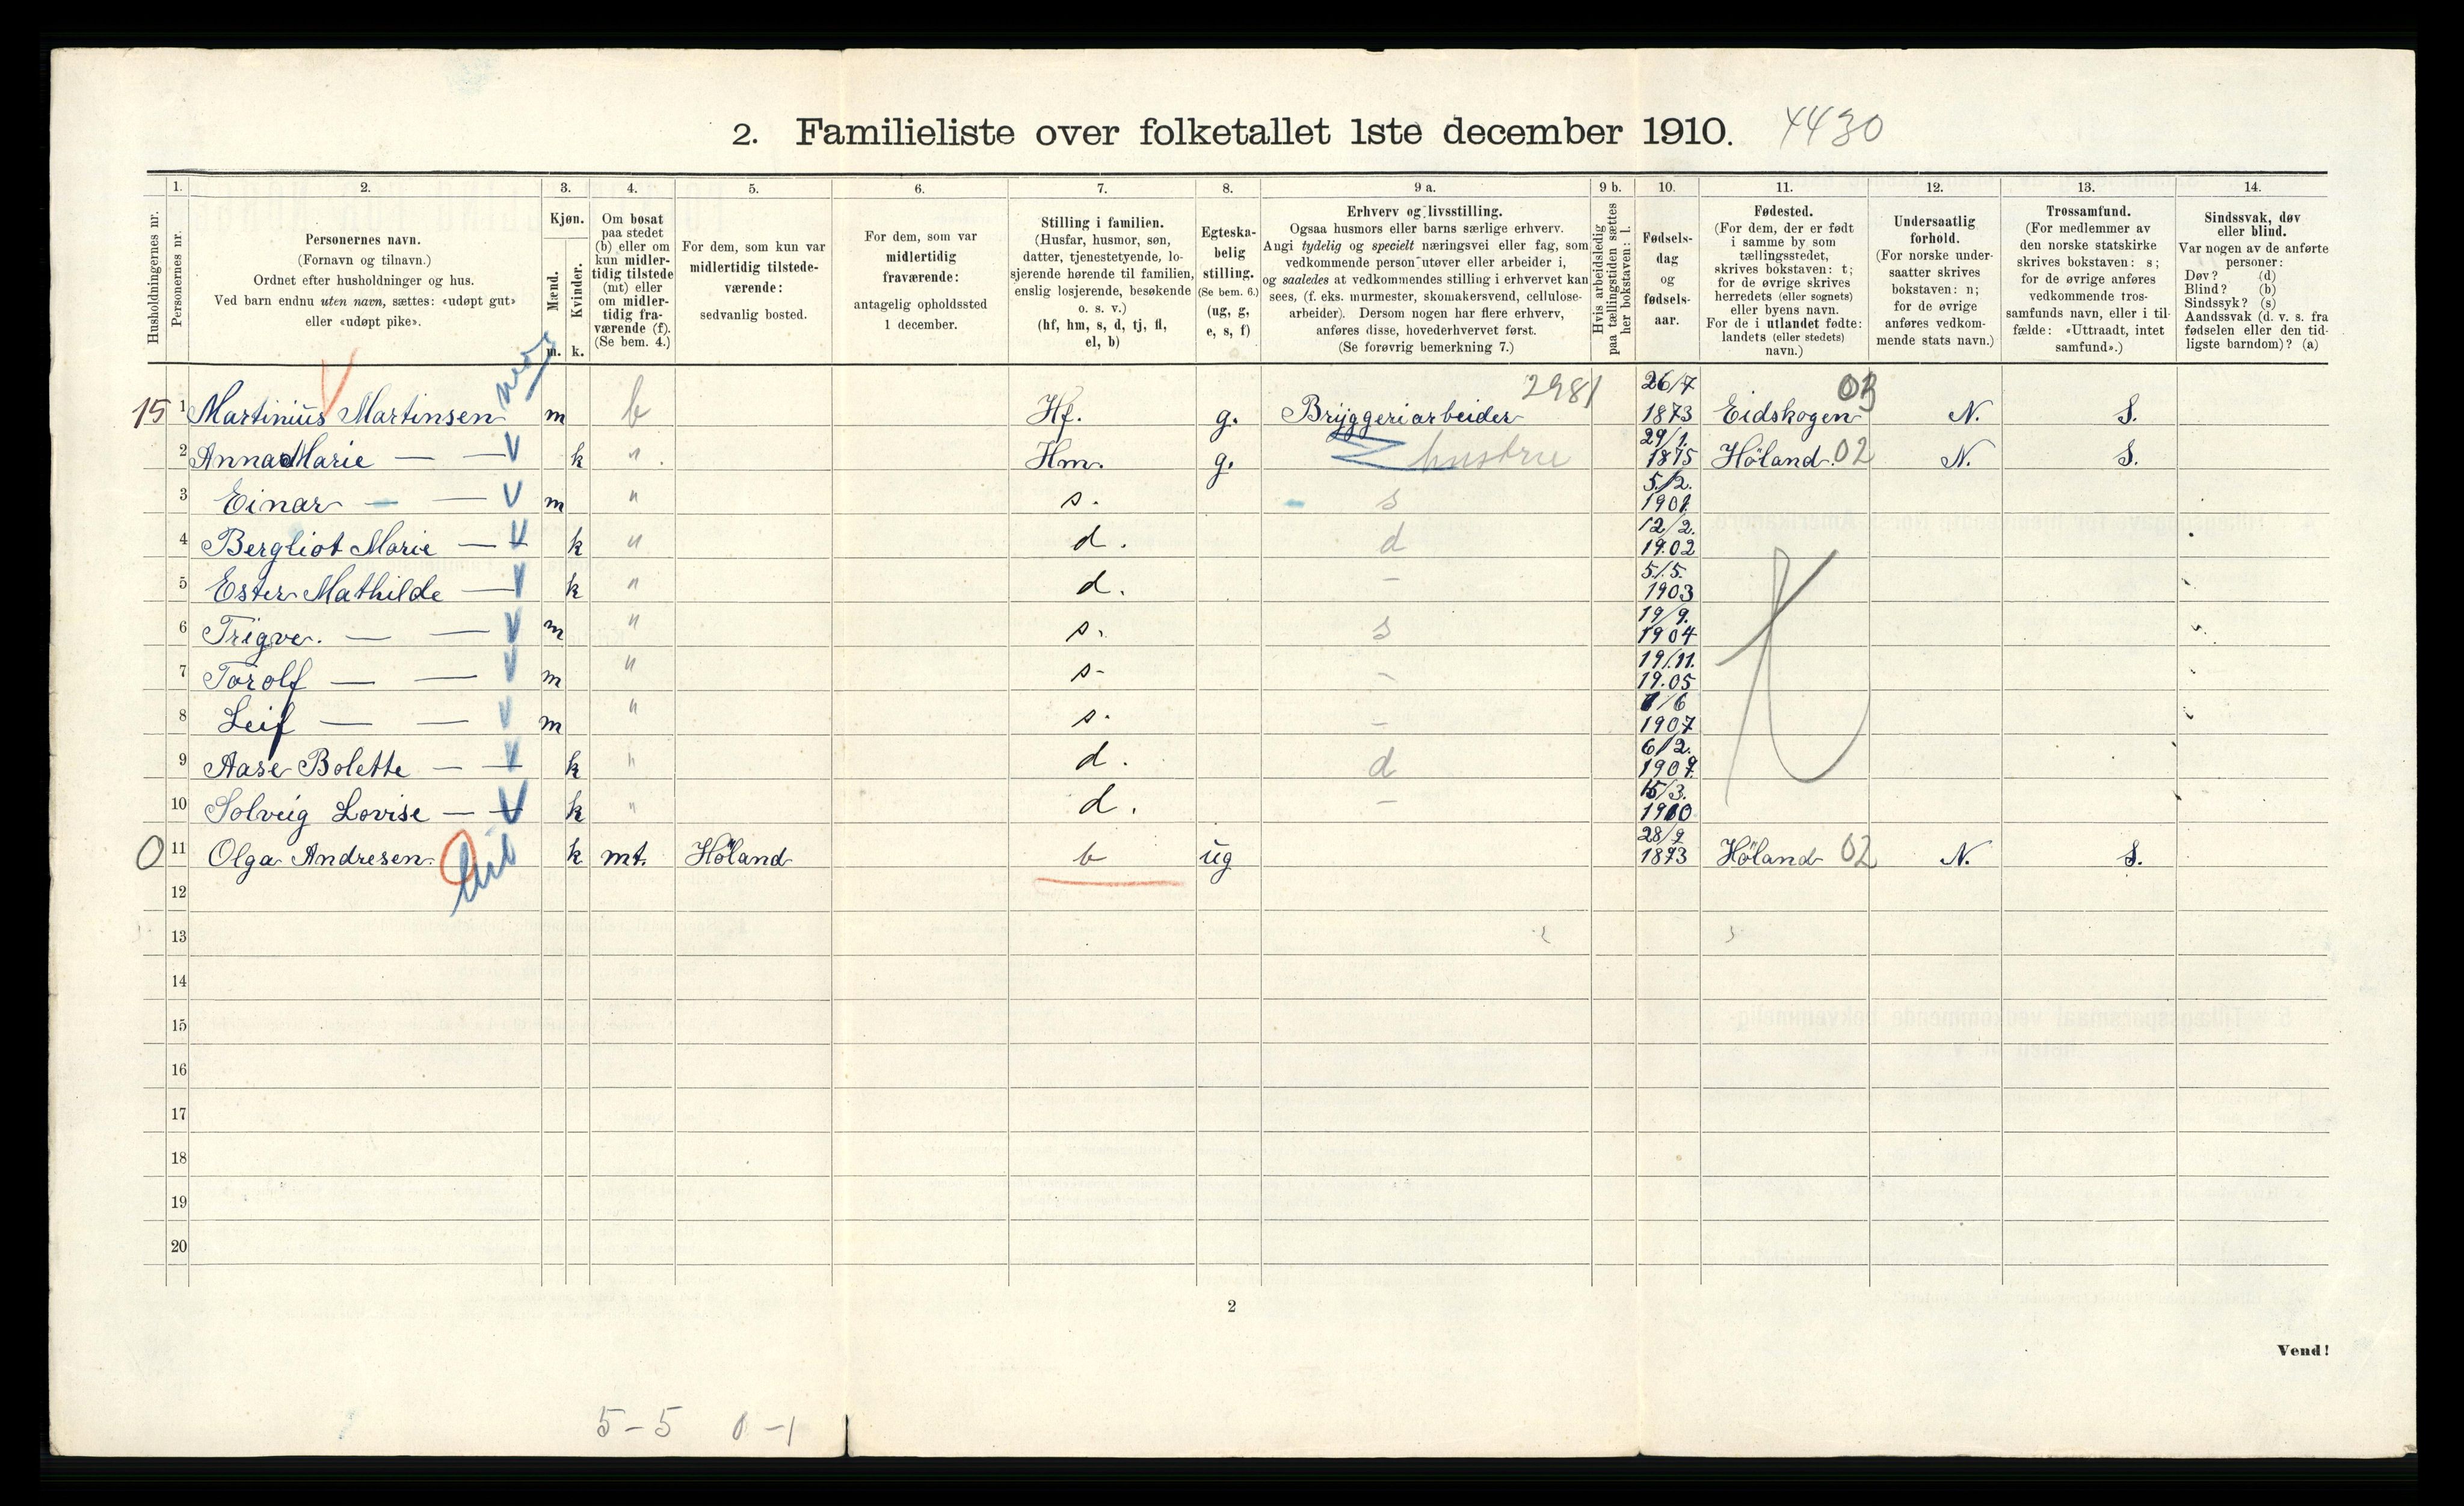 2. Familieliste over folketallet 1ste december 1910. 4430
Husholdningernes nr.
1. Personernes nr.
2. Personernes navn.
(Fornavn og tilnavn.)
Ordnet efter husholdninger og hus.
Ved barn endnu uten navn, sættes: «udøpt gut»
eller «udøpt pike».
3. Kjøn.
Mænd. Kvinder.
m. k.
4. Om bosat
paa stedet
(b) eller om
kun midler-
tidig tilstede
(mt) eller
om midler-
tidig fra-
værende (f).
(Se bem. 4.)
5. For dem, som kun var
midlertidig tilstede-
værende:
sedvanlig bosted.
6. For dem, som var
midlertidig
fraværende:
antagelig opholdssted
1 december.
7. Stilling i familien.
(Husfar, husmor, søn,
datter, tjenestetyende, lo-
sjerende hørende til familien,
enslig losjerende, besøkende
o. s. v.)
(hf, hm, s, d, tj, fl,
el, b)
8. Egteska-
belig
stilling.
(Se bem. 6.)
(ug, g,
e, s, f)
9 a. Erhverv og livsstilling.
Ogsaa husmors eller barns særlige erhverv.
Angi tydelig og specielt næringsvei eller fag, som
vedkommende person utøver eller arbeider i,
og saaledes at vedkommendes stilling i erhvervet kan
sees, (f. eks. murmester, skomakersvend, cellulose-
arbeider). Dersom nogen har flere erhverv,
anføres disse, hovederhvervet først.
(Se forøvrig bemerkning 7.)
9 b. Hvis arbeidsledig
paa tællingstiden sættes
her bokstaven: l.
10. Fødsels-
dag
og
fødsels-
aar.
11. Fødested.
(For dem, der er født
i samme by som
tællingsstedet,
skrives bokstaven: t;
for de øvrige skrives
herredets (eller sognets)
eller byens navn.
For de i utlandet fødte:
landets (eller stedets)
navn.)
12. Undersaatlig
forhold.
(For norske under-
saatter skrives
bokstaven: n;
for de øvrige
anføres vedkom-
mende stats navn.)
13. Trossamfund.
(For medlemmer av
den norske statskirke
skrives bokstaven: s;
for de øvrige anføres
vedkommende tros-
samfunds navn, eller i til-
fælde: «Uttraadt, intet
samfund».)
14. Sindssvak, døv
eller blind.
Var nogen av de anførte
personer:
Døv? (d)
Blind? (b)
Sindssyk? (s)
Aandssvak (d. v. s. fra
fødselen eller den tid-
ligste barndom)? (a)
15 1 Martinius Martinsen m b Hf. g. Bryggeriarbeider 2981 26/7 1873 Eidskogen 03 N. S.
2 Anna Marie — — k " Hm. g. hustru 29/1. 1875 Höland. 02 N. S.
3 Einar — — m " s. s 5/2. 1901
4 Bergliot Marie — k " d. d 12/2. 1902
5 Ester Mathilde — k " d. – 5/5. 1903
6 Trigve. — — m " s. s 19/9. 1904
7 Torolf — — m " s- – 19/11. 1905
8 Leif — — m " s. – 1/6 1907
9 Aase Bolette — — k " d. d 6/2. 1909
10 Solveig Lovise — — k " d. – 15/3. 1910
0 11 Olga Andresen. k mt. Höland b ug 28/9 1873 Höland 02 N. S.
12
13
14
15
16
17
18
19
20
2
Vend!
5-5 0-1